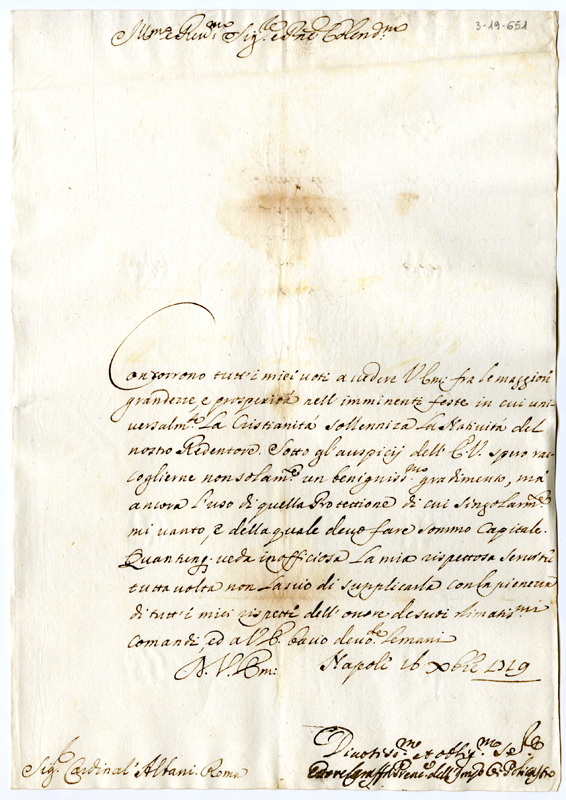 3-19-651
Ill.mo e Rev.mo Sig.re e Pne Colend.mo
Concorrono tutt'i miei voti a vedere V. Em: fra le maggiori
grandezze, e prosperità nell'imminenti feste in cui uni-
versalm.te La Cristianità sollenniza La Natività del
nostro Redentore. Sotto gl'auspicij dell'E.V. spero rac-
coglierne non solam.te un benigniss.mo gradimento, mà
ancora l'uso di quella Protettione di cui singolarm.te
mi vanto, e della quale devo fare sommo Capitale.
Quantunq. veda inofficiosa La mia rispettosa Servitù
tutta volta non lascio di supplicarla con la pienezza
di tutt'i miei rispetti dell'onore de suoi stimatis.mi
comandi, ed a V.E. bacio devo.te Le mani
D. V. Em: Napoli 16 Xbre 1719
Divotiss.mo et obblig.mo Se.re
Sig.r Cardinal'Albani. Roma